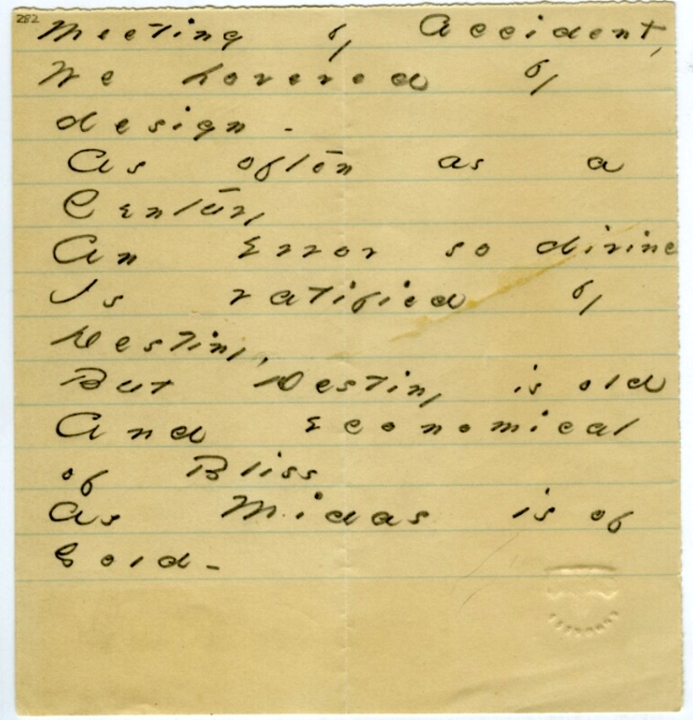 282
Meeting by Accident,
We hovered by
design -
As often as a
Century
An Error so divine
Is ratified by
Destiny,
But Destiny is old
And Economical
of Bliss
As Midas is of
Gold -